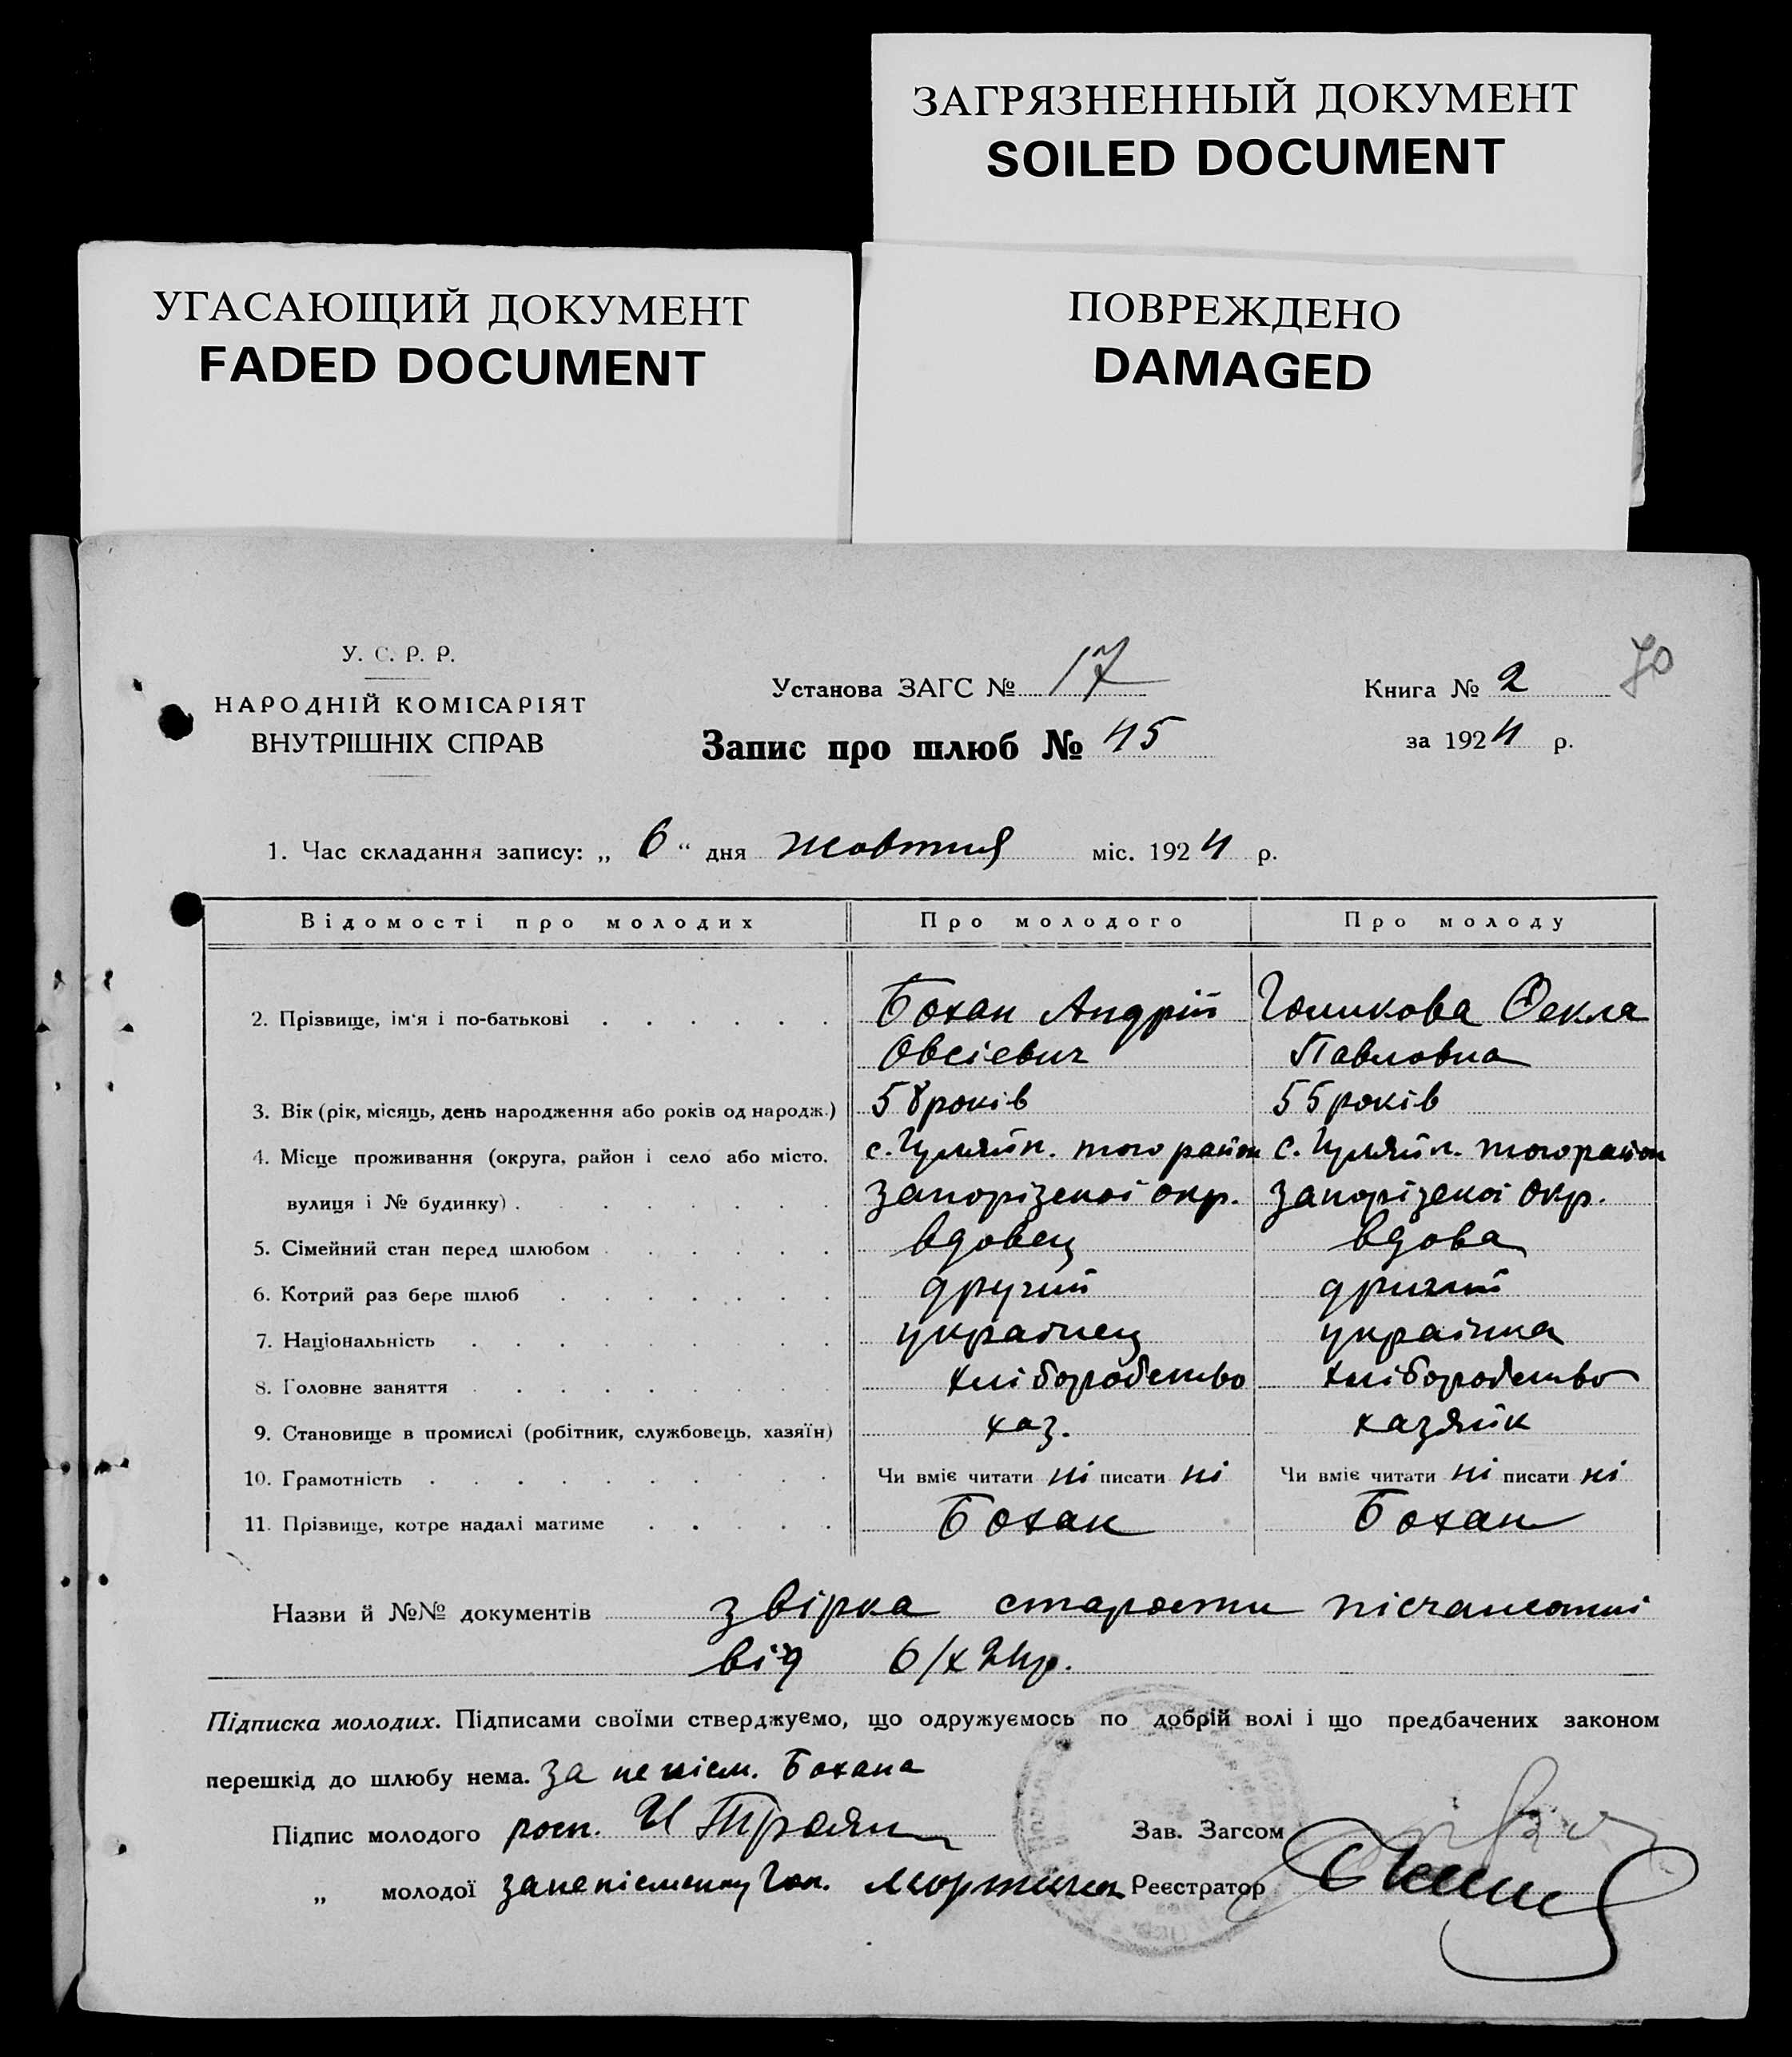 ЗАГРЯЗНЕННЫЙ ДОКУМЕНТ
SOILED DOCUMENT
УГАСАЮЩИЙ ДОКУМЕНТ
FADED DOCUMENT
ПОВРЕЖДЕНО
DAMAGED
У. С. Р. Р.
НАРОДНІЙ КОМІСАРІЯТ
ВНУТРІШНІХ СПРАВ
Установа ЗАГС № 17
Запис про шлюб № 45
Книга № 2
70
за 1924 р.
1. Час складання запису: „ 6 “ дня жовтня міс. 1924 р.
Відомості про молодих Про молодого Про молоду
2. Прізвище, ім'я і по-батькові Бохан Андрій Голикова Фекла
Овсієвич Павловна
3. Вік (рік, місяць, день народження або років од народж.) 58 років 55 років
4. Місце проживання (округа, район і село або місто, с. Гуляйп. того район с. Гуляйп. того район
вулиця і № будинку) Запорізької окр. Запорізької окр.
5. Сімейний стан перед шлюбом вдовец вдова
6. Котрий раз бере шлюб другий другий
7. Національність українец українка
8. Головне заняття хліборобство хліборобство
9. Становище в промислі (робітник, службовець, хазяїн) хаз. хазяйк
10. Грамотність Чи вміє читати ні писати ні Чи вміє читати ні писати ні
11. Прізвище, котре надалі матиме Бохан Бохан
Назви й №№ документів звірка старости
від 6/X 24р.
Підписка молодих. Підписами своїми стверджуємо, що одружуємось по добрій волі і що предбачених законом
перешкід до шлюбу нема. За непісм. Бохана
Підпис молодого росп. И Троян Зав. Загсом
„ молодої за непісменну Гол. Реєстратор